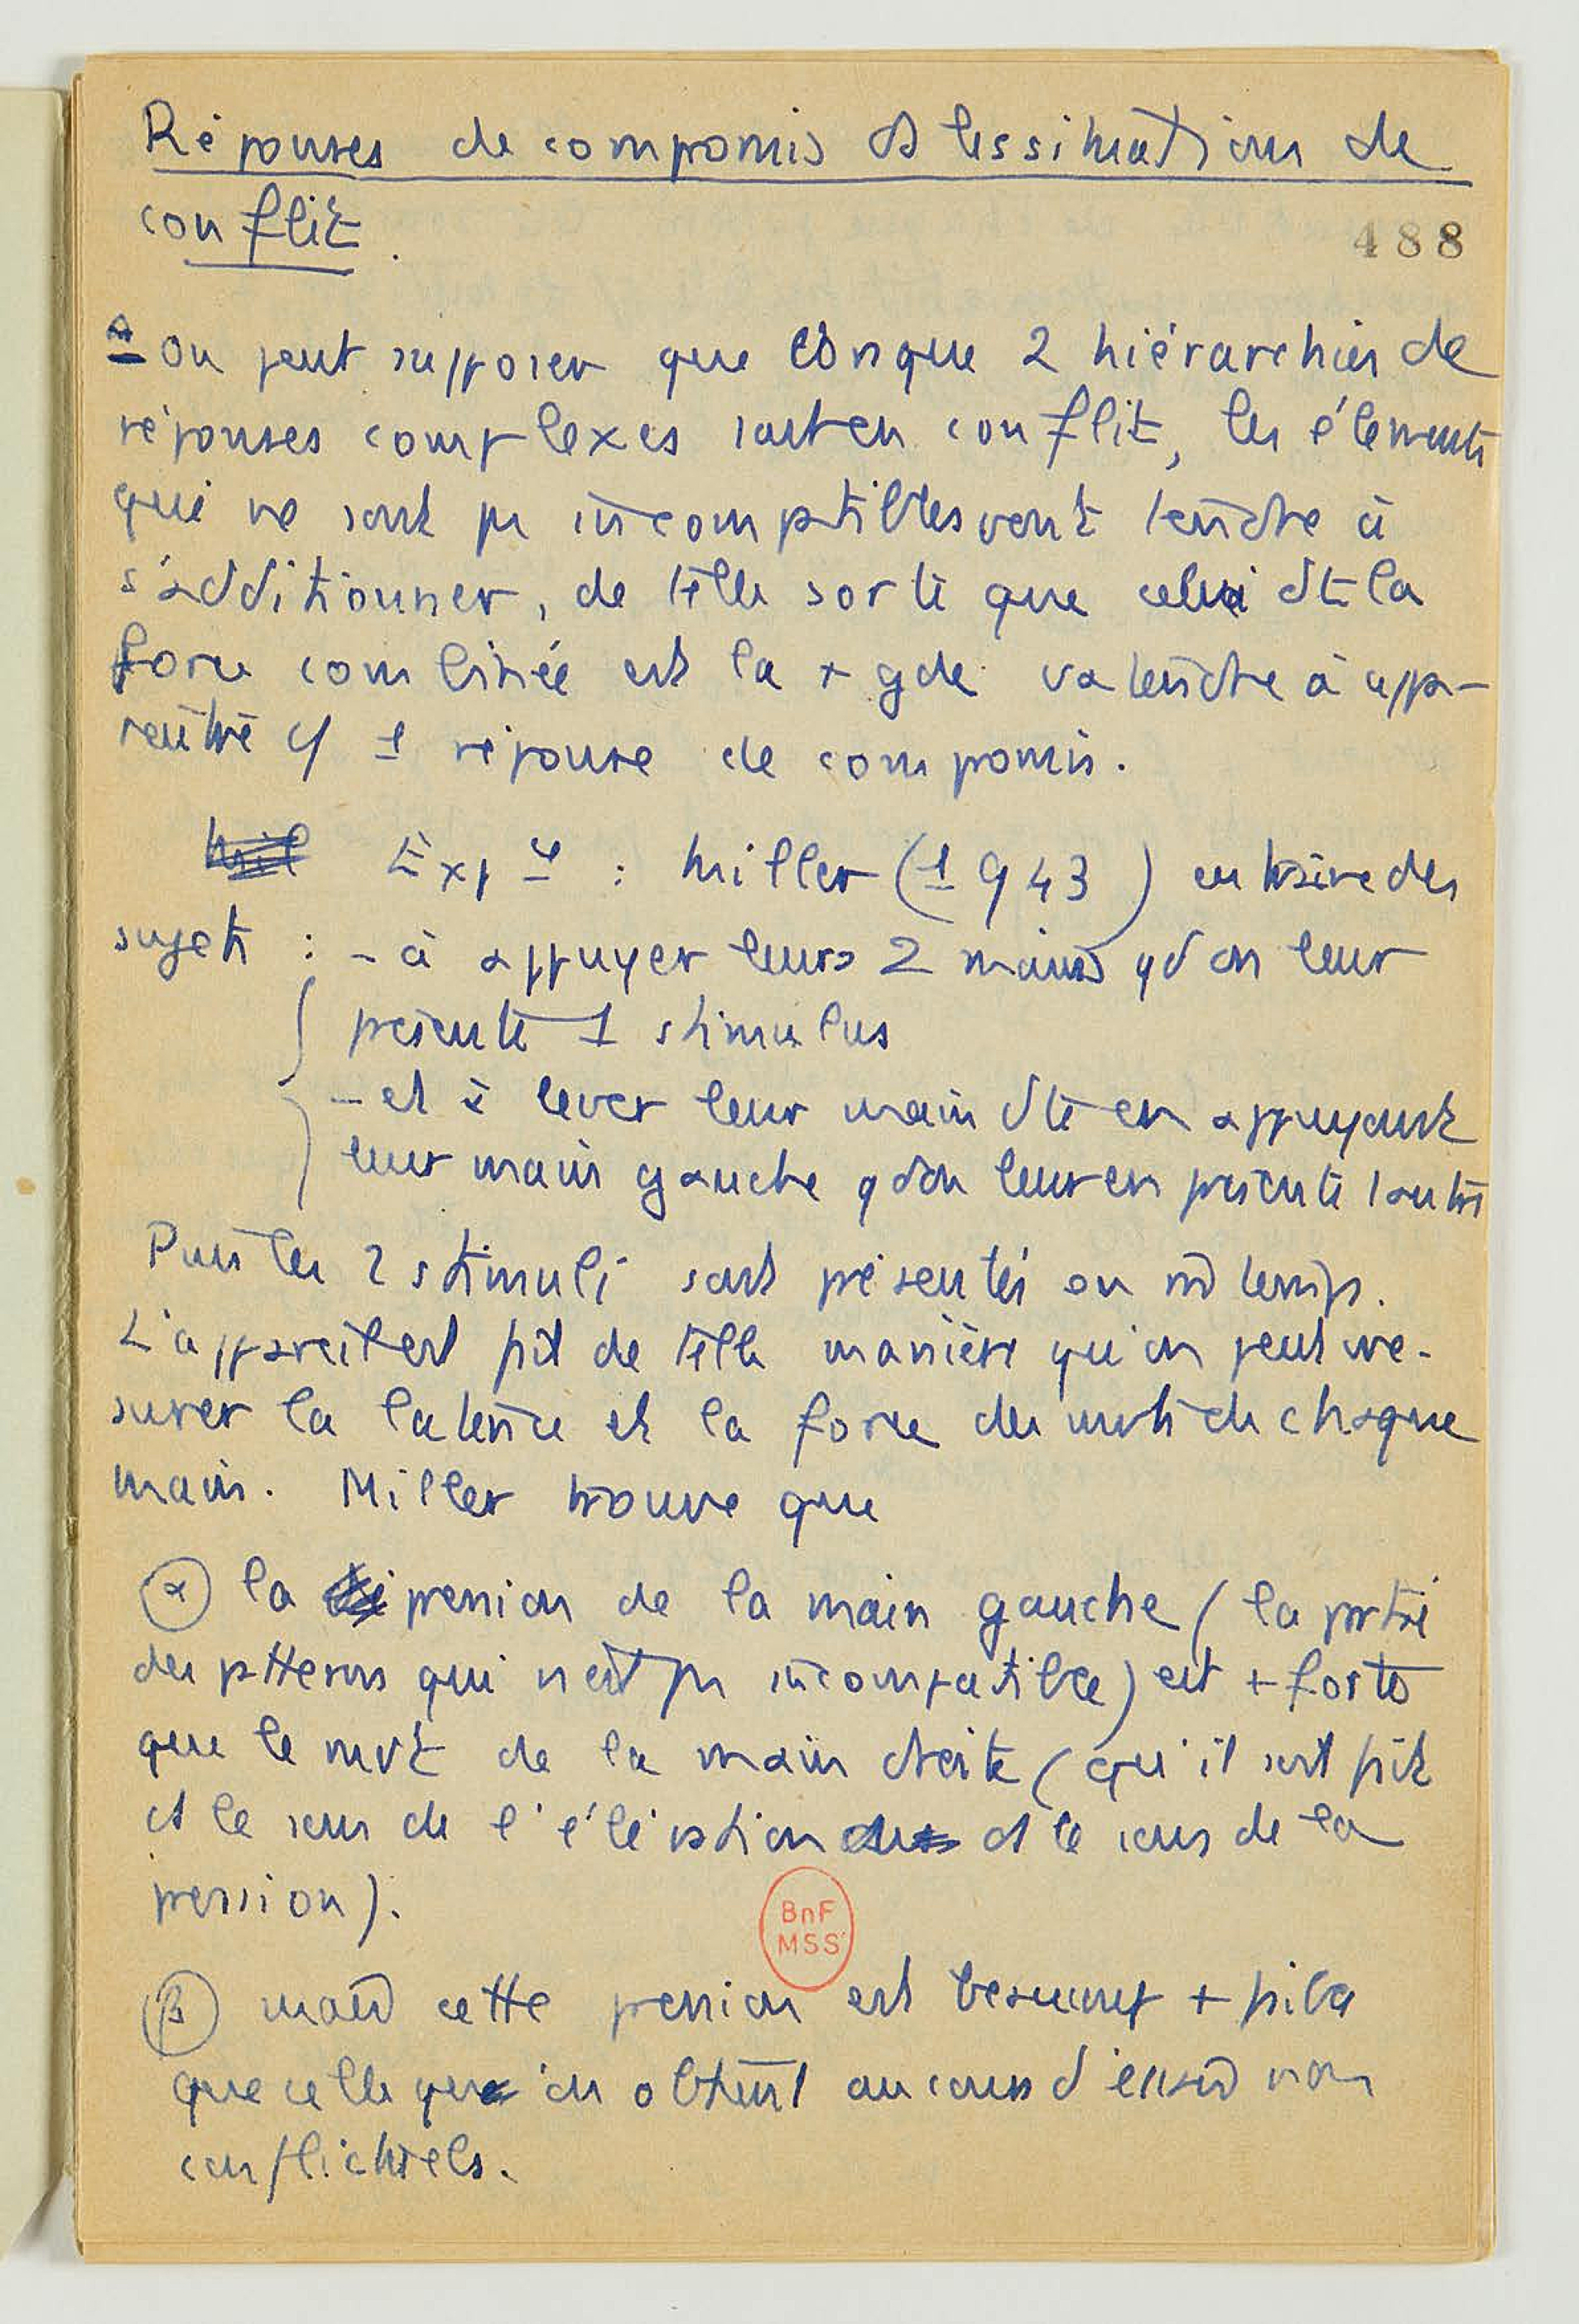 Réponses de compromis ds les situations de
conflit.
488
on peut supposer que lorsque 2 hiérarchies de
réponses complexes sont en conflit, les éléments
qui ne sont pas incomptibles vont tendre à
s'additionner, de telle sorte que celui dt la
force combinée est la + gde va tendre à app-
raître c/ 1 réponse de compromis.
Exp : Miller (1943) entraine des
sujets : - à appuyer leurs 2 mains qd on leur
présente 1 stimulus
- et à lever leur main dte en appuyant
leur main gauche qd on leur en présente 1 autre
Puis les 2 stimuli sont présentés en m̂ temps.
L'appareil est fait de telle manière qu'on peut me-
surer la latence et la force des mvts de chaque
main. Miller trouve que
α la pression de la main gauche (la partie
des patterns qui n'est pas incompatible) est + forte
que le mvt de la main droite (qu'il soit fait
ds le sens de l'élévation ds le sens de la
pression).
BnF
MSS
β mais cette pression est beaucoup + faible
que celle qu'on obtient au cours d'essais non
conflictuels.